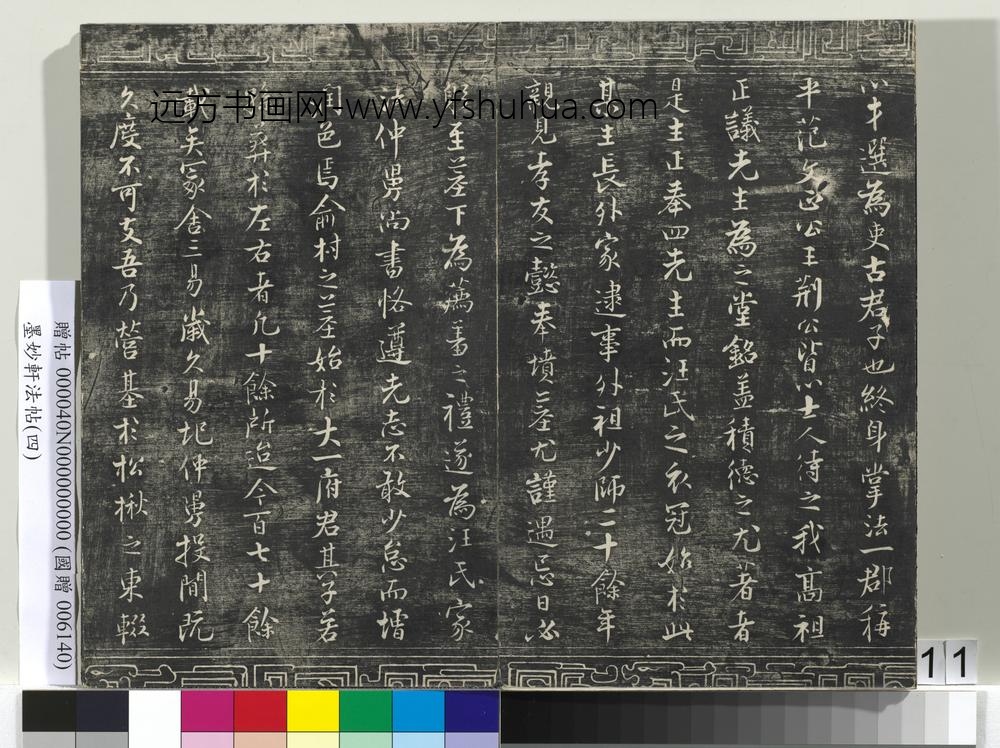 以才選為吏古君子也終身掌法一郡稱
平范文正公王荊公皆以士人待之我高祖
正議先生為之堂銘蓋積德之尤著者
是生正奉四先生而汪氏之衣冠始於此
其生長外家逮事外祖少師二十餘年
親見孝友之懿奉墳墓尤謹遇忌日必
躬至墓下為薦羞之禮遂為汪氏家
法仲舅尚書恪遵先志不敢少怠而墻
邑焉俞村之墓始於大一府君其子若
葬於左右者凡十餘所迨今百七十餘
載矣冢舍三易歲久易圮仲舅投閒既
久度不可支吾乃營基於松楸之東輟
远方书画网-www.yfshuhua.com
贈帖 000040N000000000 (國贈 006140)
墨妙軒法帖(四)
11